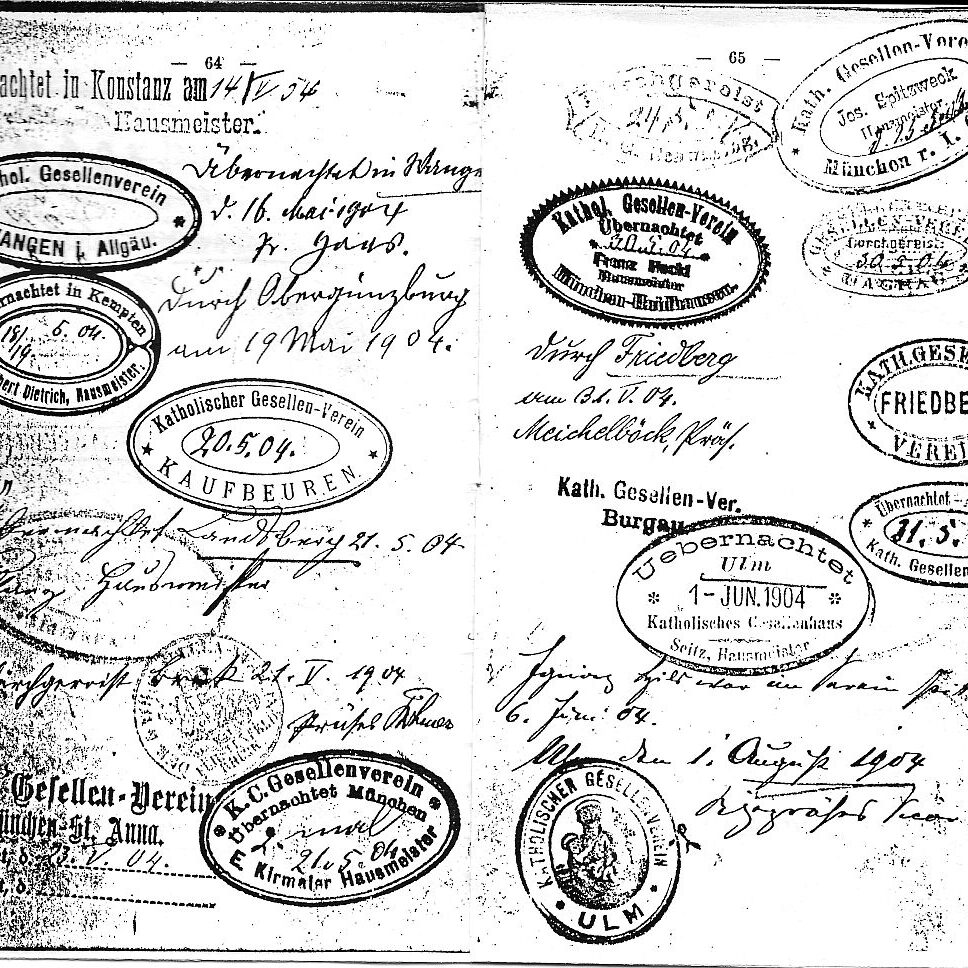 — 64 —
achtet in Konstanz am 14/V 04
Hausmeister.
hol. Gesellenverein
ANGEN i. Allgäu.
Übernachtet in Wange
d. 16. Mai 1904
Pr. Haas.
rnachtet in Kempten
18/19. 5. 04.
bert Dietrich, Hausmeister.
Durch Obergünzburg
am 19 Mai 1904.
Katholischer Gesellen-Verein
20.5.04.
KAUFBEUREN.
Landsberg 21. 5. 04
Hausmeister
rchgereist Bruck 21. V. 1904
Präses
Gesellen-Verein
ünchen-St. Anna.
t, d. 23. V. 04.
t, d.
K.C. Gesellenverein
Übernachtet München
2 mal
21. 5. 04
E. Kirmaier Hausmeister
— 65 —
gereist
24/5.
Kath. Gesellen-Vere
Jos. Spitzweck
Hausmeister
München r. I.
Kathol. Gesellen-Verein
Übernachtet
30.5.04
Franz Heckl
Hausmeister
München-Haidhausen.
GESELLEN-VERE
Durchgereist
30.5.04
DACHAU
Durch Friedberg
am 31. V. 04.
Meichelböck, Präs.
KATH. GESE
FRIEDBE
VEREI
Kath. Gesellen-Ver.
Burgau
Übernachtet
31. 5.
Kath. Gesellen
Uebernachtet
Ulm
1-JUN.1904
Katholisches Gesellenhaus
Seitz, Hausmeister
war im Verein
6. Juni 04.
Ulm den 1. August 1904
KATHOLISCHER GESELLENVEREIN
ULM